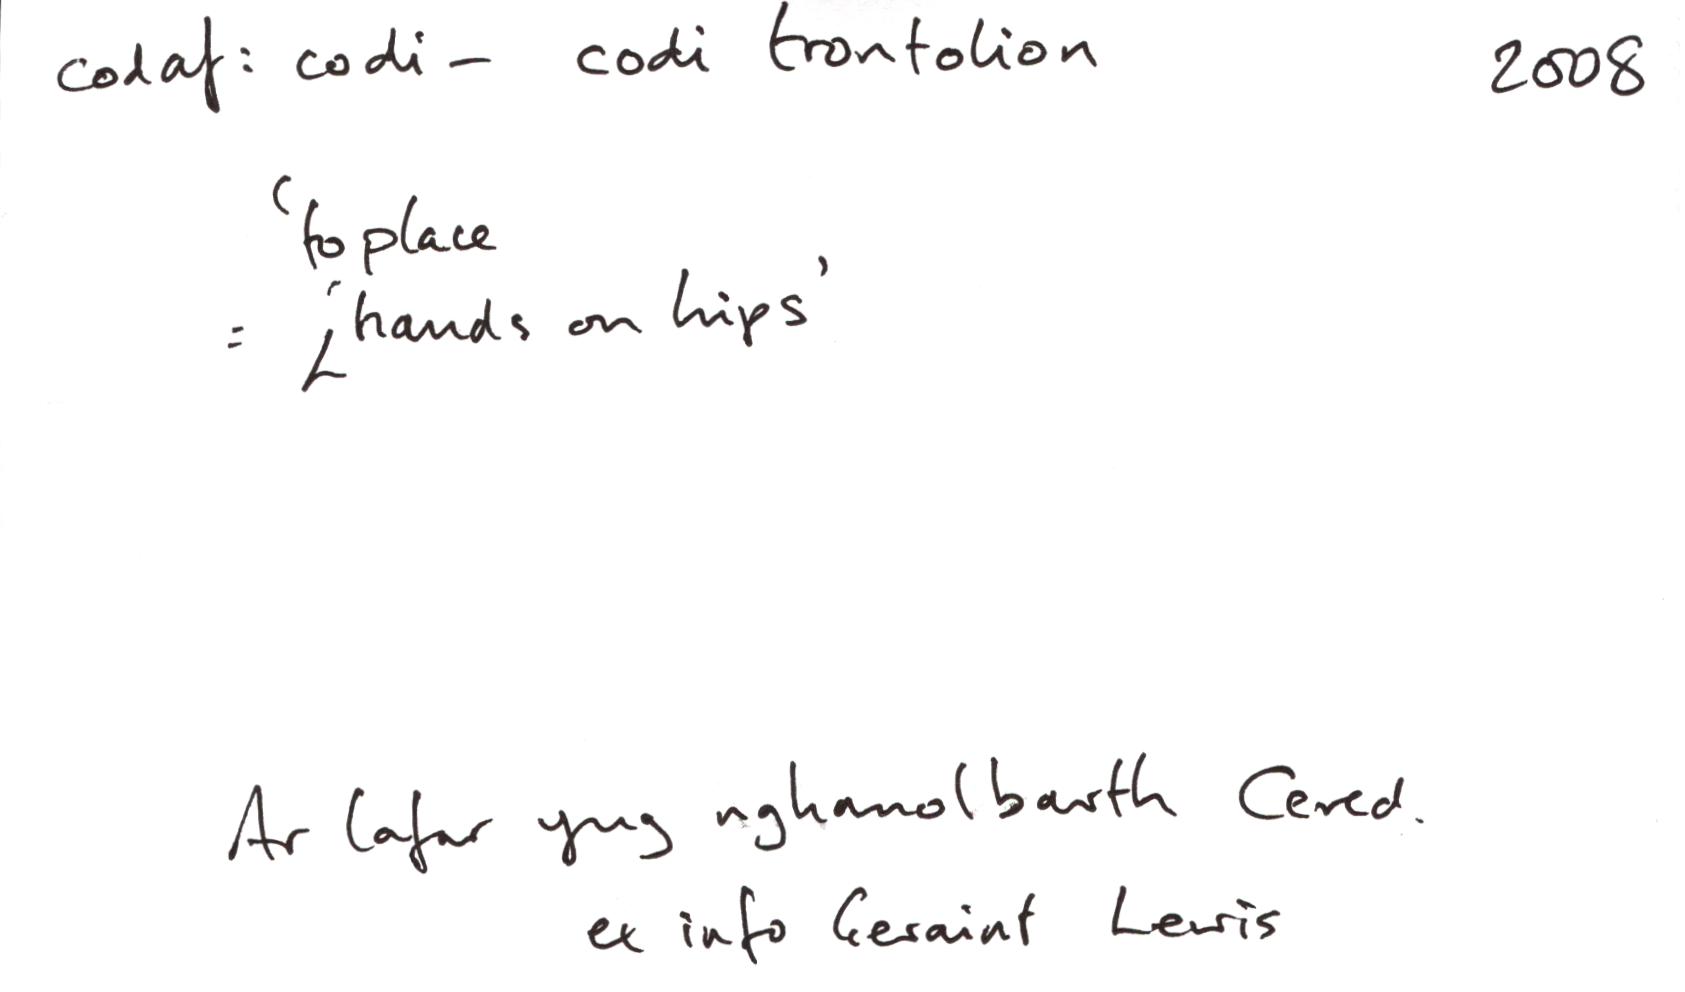 codaf: codi – codi trontolion 2008
'to place
= 'hands on hips'
Ar lafar yng nghanolbarth Cered.
ex info Geraint Lewis